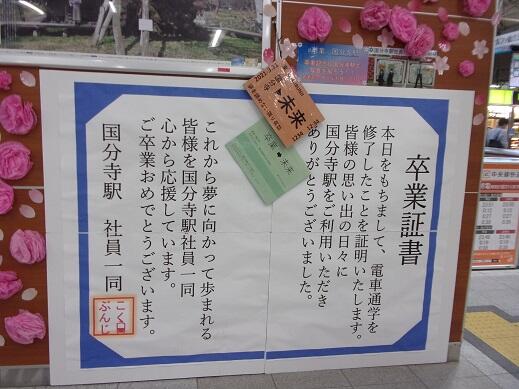 卒業証書
本日をもちまして、電車通学を
修了したことを証明いたします。
皆様の思い出の日々に
国分寺駅をご利用いただき
ありがとうございました。
これから夢に向かって歩まれる
皆様を国分寺駅社員一同
心から応援しています。
ご卒業おめでとうございます。
国分寺駅 社員一同
こく
ぶんじ
未来
卒業
未来